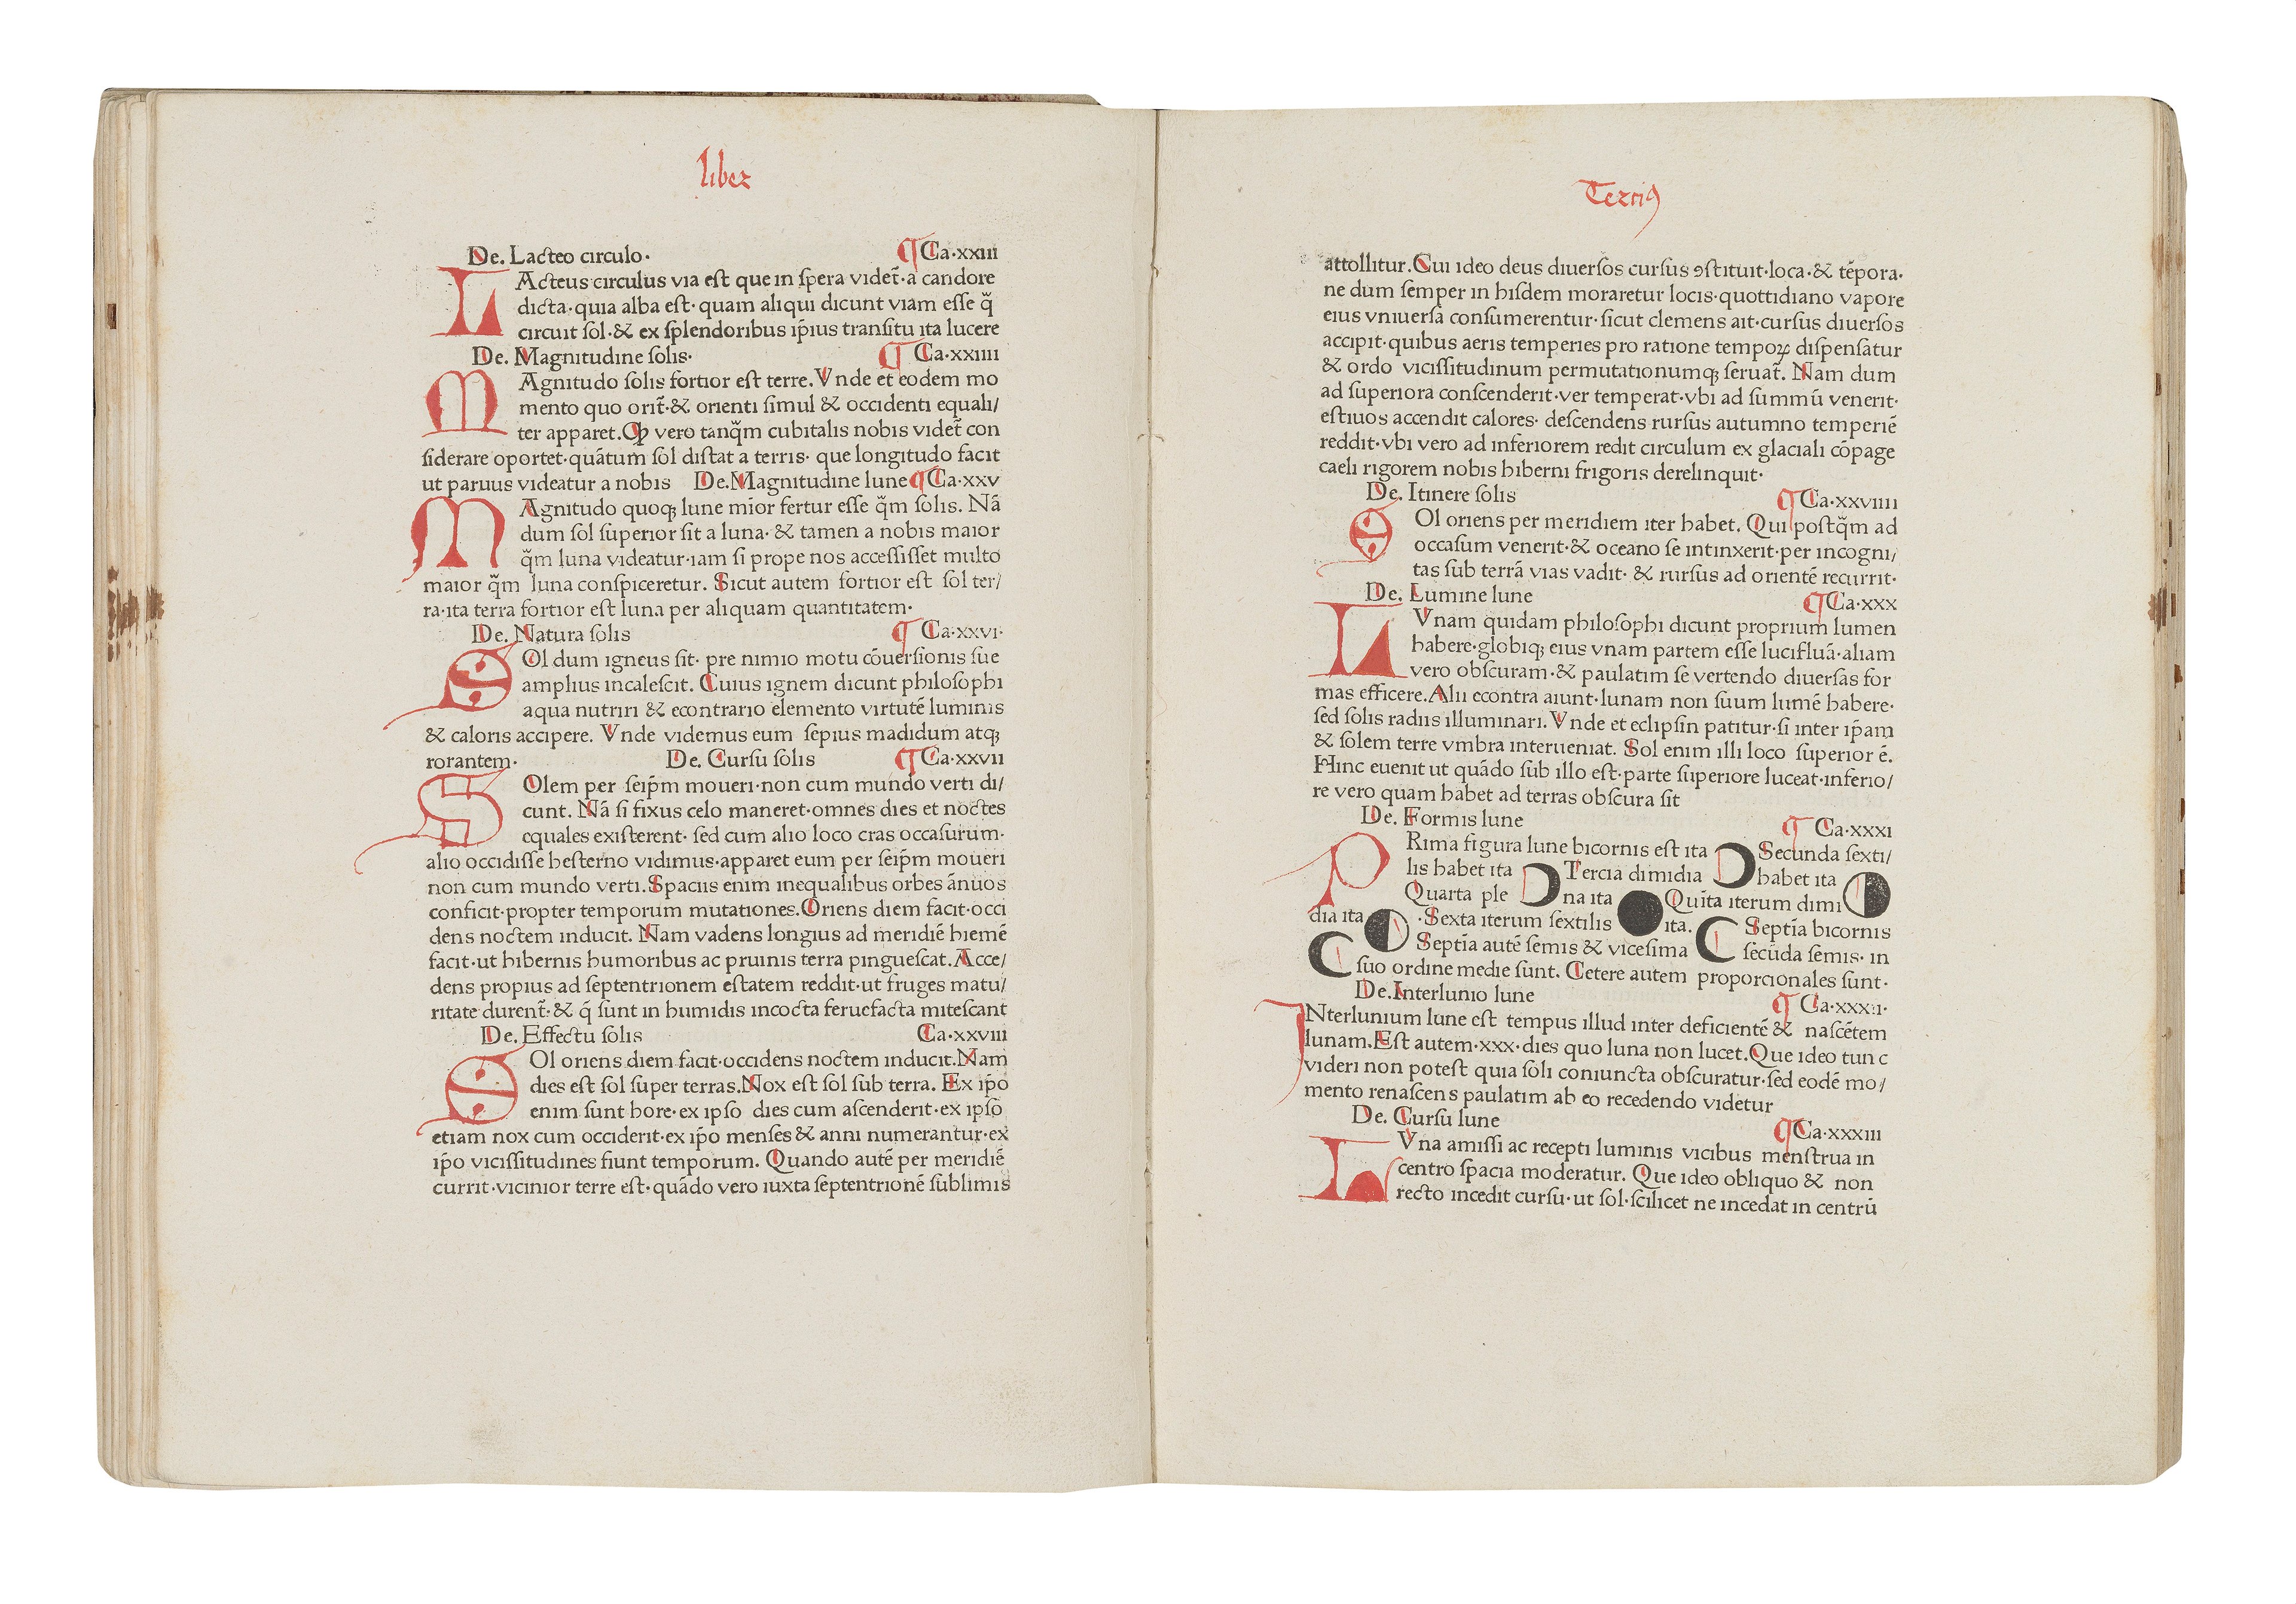 liber
De. Lacteo circulo· ¶ Ca·xxiii
LActeus circulus via est que in spera videt̃·a candore
dicta·quia alba est·quam aliqui dicunt viam esse q̃
circuit sol·& ex splendoribus ip̃ius transitu ita lucere
De. Magnitudine solis· ¶ Ca·xxiiii
MAgnitudo solis fortior est terre. Vnde et eodem mo
mento quo orit̃·& orienti simul & occidenti equali/
ter apparet. Qꝫ vero tanq̃m cubitalis nobis videt̃ con
siderare oportet·quãtum sol distat a terris· que longitudo facit
ut paruus videatur a nobis De. Magnitudine lune ¶ Ca·xxv
MAgnitudo quoqꝫ lune mior fertur esse q̃m solis. Nã
dum sol superior sit a luna·& tamen a nobis maior
q̃m luna videatur·iam si prope nos accessisset multo
maior q̃m luna conspiceretur. Sicut autem fortior est sol ter/
ra·ita terra fortior est luna per aliquam quantitatem·
De. Natura solis ¶ Ca·xxvi·
SOl dum igneus sit· pre nimio motu cõuersionis sue
amplius incalescit. Cuius ignem dicunt philosophi
aqua nutriri & econtrario elemento virtutẽ luminis
& caloris accipere. Vnde videmus eum sepius madidum atqꝫ
rorantem· De. Cursu solis ¶ Ca·xxvii
SOlem per seip̃m moueri·non cum mundo verti di/
cunt. Nã si fixus celo maneret·omnes dies et noctes
equales existerent· sed cum alio loco cras occasurum·
alio occidisse hesterno vidimus·apparet eum per seip̃m moueri
non cum mundo verti. Spaciis enim inequalibus orbes ãnuos
conficit·propter temporum mutationes. Oriens diem facit·occi
dens noctem inducit. Nam vadens longius ad meridiẽ hiemẽ
facit·ut hibernis humoribus ac pruinis terra pinguescat. Acce/
dens propius ad septentrionem estatem reddit·ut fruges matu/
ritate durent̃·& q̃ sunt in humidis incocta feruefacta mitescant
De. Effectu solis Ca·xxviii
SOl oriens diem facit·occidens noctem inducit. Nam
dies est sol super terras. Nox est sol sub terra. Ex ip̃o
enim sunt hore·ex ipso dies cum ascenderit·ex ipso
etiam nox cum occiderit·ex ip̃o menses & anni numerantur·ex
ip̃o vicissitudines fiunt temporum. Quando autẽ per meridiẽ
currit·vicinior terre est·quãdo vero iuxta septentrionẽ sublimis
Terciꝰ
attollitur. Cui ideo deus diuersos cursus ꝯstituit·loca·& tẽpora·
ne dum semper in hisdem moraretur locis·quottidiano vapore
eius vniuersa consumerentur·sicut clemens ait·cursus diuersos
accipit·quibus aeris temperies pro ratione tempoꝝ dispensatur
& ordo vicissitudinum permutationumqꝫ seruat̃. Nam dum
ad superiora conscenderit·ver temperat·vbi ad summũ venerit·
estiuos accendit calores· descendens rursus autumno temperiẽ
reddit·vbi vero ad inferiorem redit circulum ex glaciali cõpage
caeli rigorem nobis hiberni frigoris derelinquit·
De. Itinere solis ¶ Ca·xxviiii
SOl oriens per meridiem iter habet. Qui postq̃m ad
occasum venerit·& oceano se intinxerit·per incogni/
tas sub terrã vias vadit·& rursus ad orientẽ recurrit·
De. Lumine lune ¶ Ca·xxx
LVnam quidam philosophi dicunt proprium lumen
habere·globiqꝫ eius vnam partem esse lucifluã·aliam
vero obscuram·& paulatim se vertendo diuersas for
mas efficere. Alii econtra aiunt·lunam non suum lumẽ habere·
sed solis radiis illuminari. Vnde et eclipsin patitur·si inter ip̃am
& solem terre vmbra interueniat. Sol enim illi loco superior ẽ.
Hinc euenit ut quãdo sub illo est·parte superiore luceat·inferio/
re vero quam habet ad terras obscura sit
De. Formis lune ¶ Ca·xxxi
PRima figura lune bicornis est ita Secunda sexti/
lis habet ita Tercia dimidia habet ita
Quarta ple na ita Quĩta iterum dimi
dia ita ·Sexta iterum sextilis ita. Septĩa bicornis
Septĩa autẽ semis & vicesima secũda semis· in
suo ordine medie sunt. Cetere autem proporcionales sunt·
De. Interlunio lune ¶ Ca·xxxii·
INterlunium lune est tempus illud inter deficientẽ & nascẽtem
lunam. Est autem·xxx·dies quo luna non lucet. Que ideo tunc
videri non potest quia soli coniuncta obscuratur·sed eodẽ mo/
mento renascens paulatim ab eo recedendo videtur
De. Cursu lune ¶ Ca·xxxiii
LVna amissi ac recepti luminis vicibus menstrua in
centro spacia moderatur. Que ideo obliquo & non
recto incedit cursu·ut sol·scilicet ne incedat in centrũ